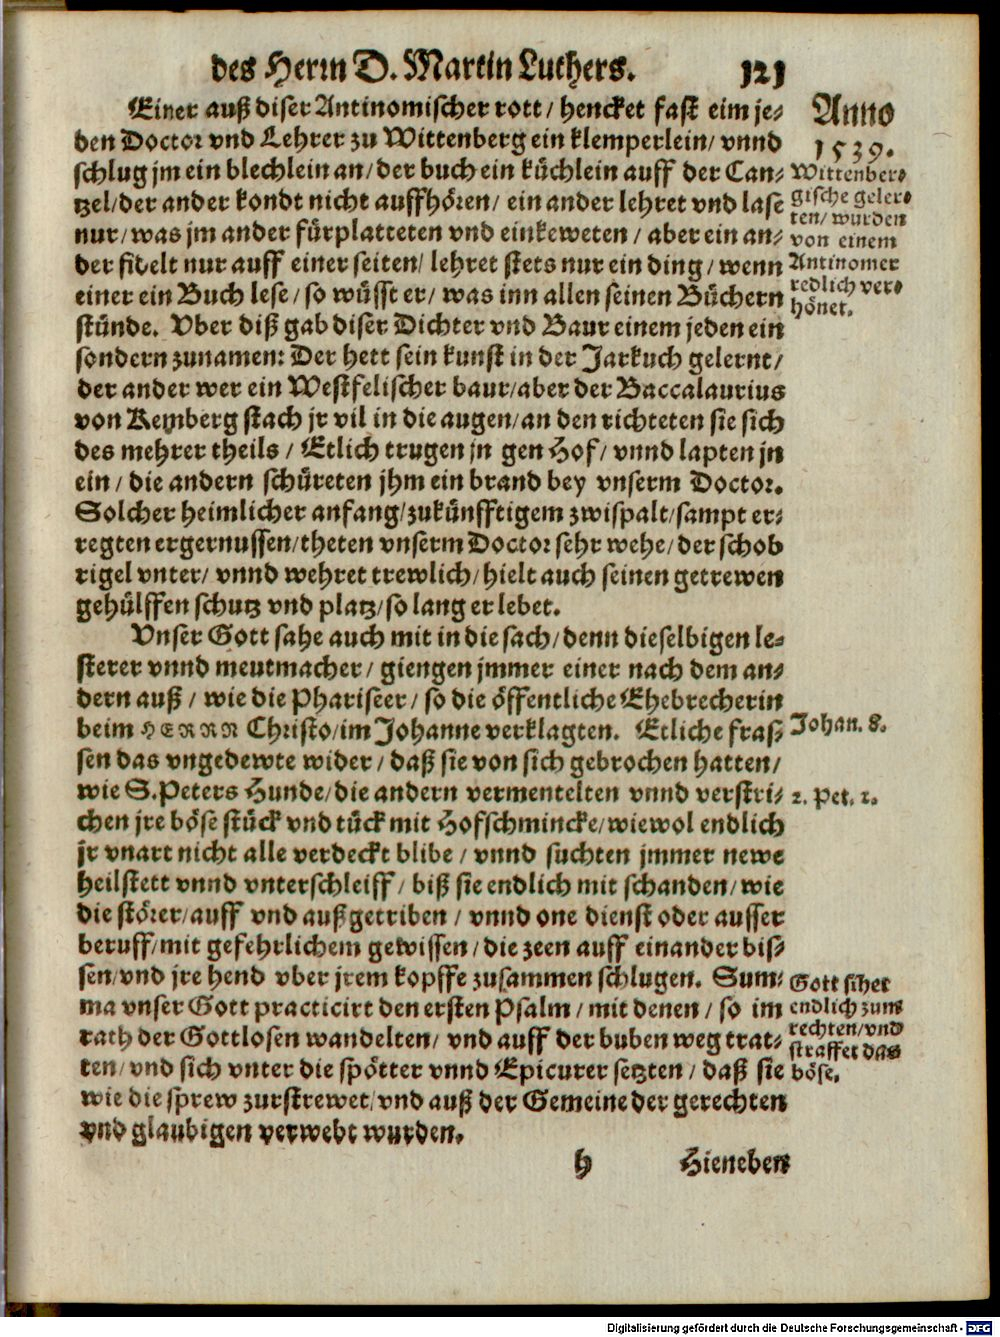 des Herrn D. Martin Luthers. 121
Anno
1539.
Einer auß diser Antinomischer rott/ hencket fast eim je-
den Doctor vnd Lehrer zu Wittenberg ein klemperlein/ vnnd
schlug jm ein blechlein an/ der buch ein küchlein auff der Can-
tzel/ der ander kondt nicht auffhören/ ein ander lehret vnd lase
nur/ was jm ander fürplatteten vnd einkeweten/ aber ein an-
der fidelt nur auff einer seiten/ lehret stets nur ein ding/ wenn
einer ein Buch lese/ so wüsst er/ was inn allen seinen Büchern
stünde. Vber diß gab diser Dichter vnd Baur einem jeden ein
sondern zunamen: Der hett sein kunst in der Jarkuch gelernt/
der ander wer ein Westfelischer baur/ aber der Baccalaurius
von Kemberg stach jr vil in die augen/ an den richteten sie sich
des mehrer theils/ Etlich trugen jn gen Hof/ vnnd lapten jn
ein/ die andern schüreten jhm ein brand bey vnserm Doctor.
Solcher heimlicher anfang/ zukünfftigem zwispalt/ sampt er-
regten ergernussen/ theten vnserm Doctor sehr wehe/ der schob
rigel vnter/ vnnd wehret trewlich/ hielt auch seinen getrewen
gehülffen schutz vnd platz/ so lang er lebet.
Wittenber-
gische geler-
ten/ wurden
von einem
Antinomer
redlich ver-
hönet.
Vnser Gott sahe auch mit in die sach/ denn dieselbigen le-
sterer vnnd meutmacher/ giengen jmmer einer nach dem an-
dern auß/ wie die Phariseer/ so die öffentliche Ehebrecherin
beim HERRN Christo/ im Johanne verklagten. Etliche fras-
sen das vngedewte wider/ daß sie von sich gebrochen hatten/
wie S. Peters Hunde/ die andern vermentelten vnnd verstri-
chen jre böse stück vnd tück mit Hofschmincke/ wiewol endlich
jr vnart nicht alle verdeckt blibe/ vnnd suchten jmmer newe
heilstett vnnd vnterschleiff/ biß sie endlich mit schanden/ wie
die störer/ auff vnd außgetriben/ vnnd one dienst oder ausser
beruff/ mit gefehrlichem gewissen/ die zeen auff einander bis-
sen/ vnd jre hend vber jrem kopffe zusammen schlugen. Sum-
ma vnser Gott practicirt den ersten Psalm/ mit denen/ so im
rath der Gottlosen wandelten/ vnd auff der buben weg trat-
ten/ vnd sich vnter die spötter vnnd Epicurer setzten/ daß sie
wie die sprew zurstrewet/ vnd auß der Gemeine der gerechten
vnd glaubigen verwebt wurden.
Johan. 8.
2. Pet. 2.
Gott sihet
endlich zum
rechten/ vnd
straffet das
böse.
h Hieneben
Digitalisierung gefördert durch die Deutsche Forschungsgemeinschaft - DFG